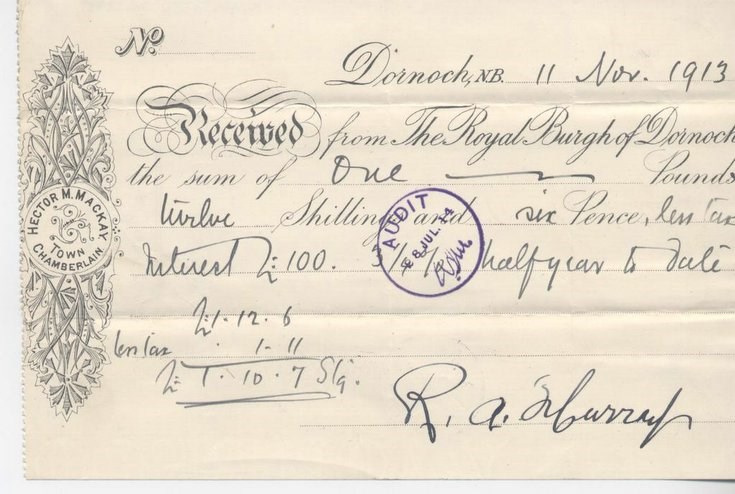 No.
Dornoch, N.B. 11 Nov. 1913
Received from The Royal Burgh of Dornoch
the sum of One Pounds
twelve Shillings and six Pence, less tax
Interest £100. half year to date
£1 . 12 . 6
less tax . 1 . 11
£ 1 . 10 . 7 Stg.
R. A. Murray
HECTOR M. MACKAY
TOWN
CHAMBERLAIN
AUDIT
8 JUL.